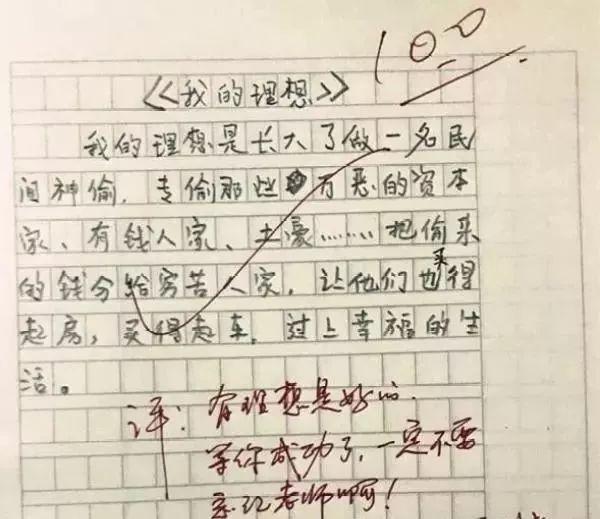 100
《我的理想》
我的理想是长大了做一名民
间神偷,专偷那些万恶的资本
家、有钱人家、土豪……把偷来
的钱分给穷苦人家,让他们也买得
起房,买得起车,过上幸福的生
活。
评:有理想是好的.
等你成功了,一定不要
忘记老师啊!